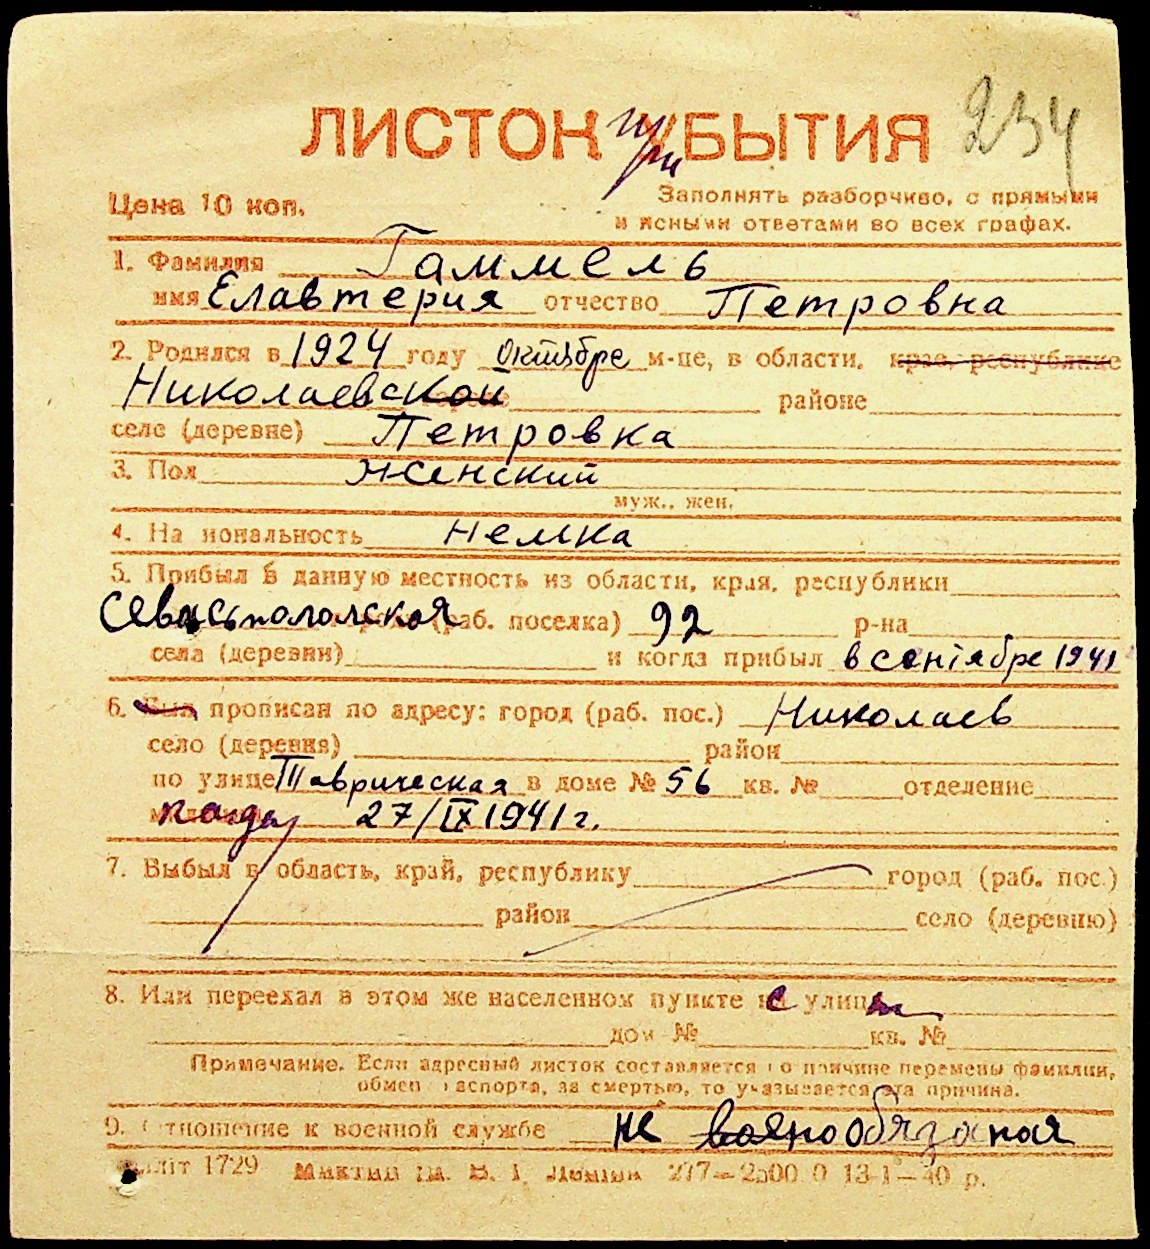 ЛИСТОК прибытия 234
Цена 10 коп. Заполнять разборчиво, с прямыми
и ясными ответами во всех графах.
1. Фамилия Гаммель
имя Елавтерия отчество Петровна
2. Родился в 1924 году октябре м-це, в области, крае, республике
Николаевской районе
селе (деревне) Петровка
3. Пол женский
муж., жен.
4. Национальность немка
5. Прибыл в данную местность из области, края, республики
Севастопольская (раб. поселка) 92 р-на
села (деревни) и когда прибыл в сентябре 1941
6. Был прописан по адресу: город (раб. пос.) Николаев
село (деревня) район
по улице Таврическая в доме № 56 кв. № отделение
когда 27/IX 1941 г.
7. Выбыл в область, край, республику город (раб. пос.)
район село (деревню)
8. Или переехал в этом же населенном пункте с улицы
дом № кв. №
Примечание. Если адресный листок составляется по причине перемены фамилии,
обмен паспорта, за смертью, то указывается эта причина.
9. Отношение к военной службе не воянообязаная
1729 277—2500 0 13-I—40 р.